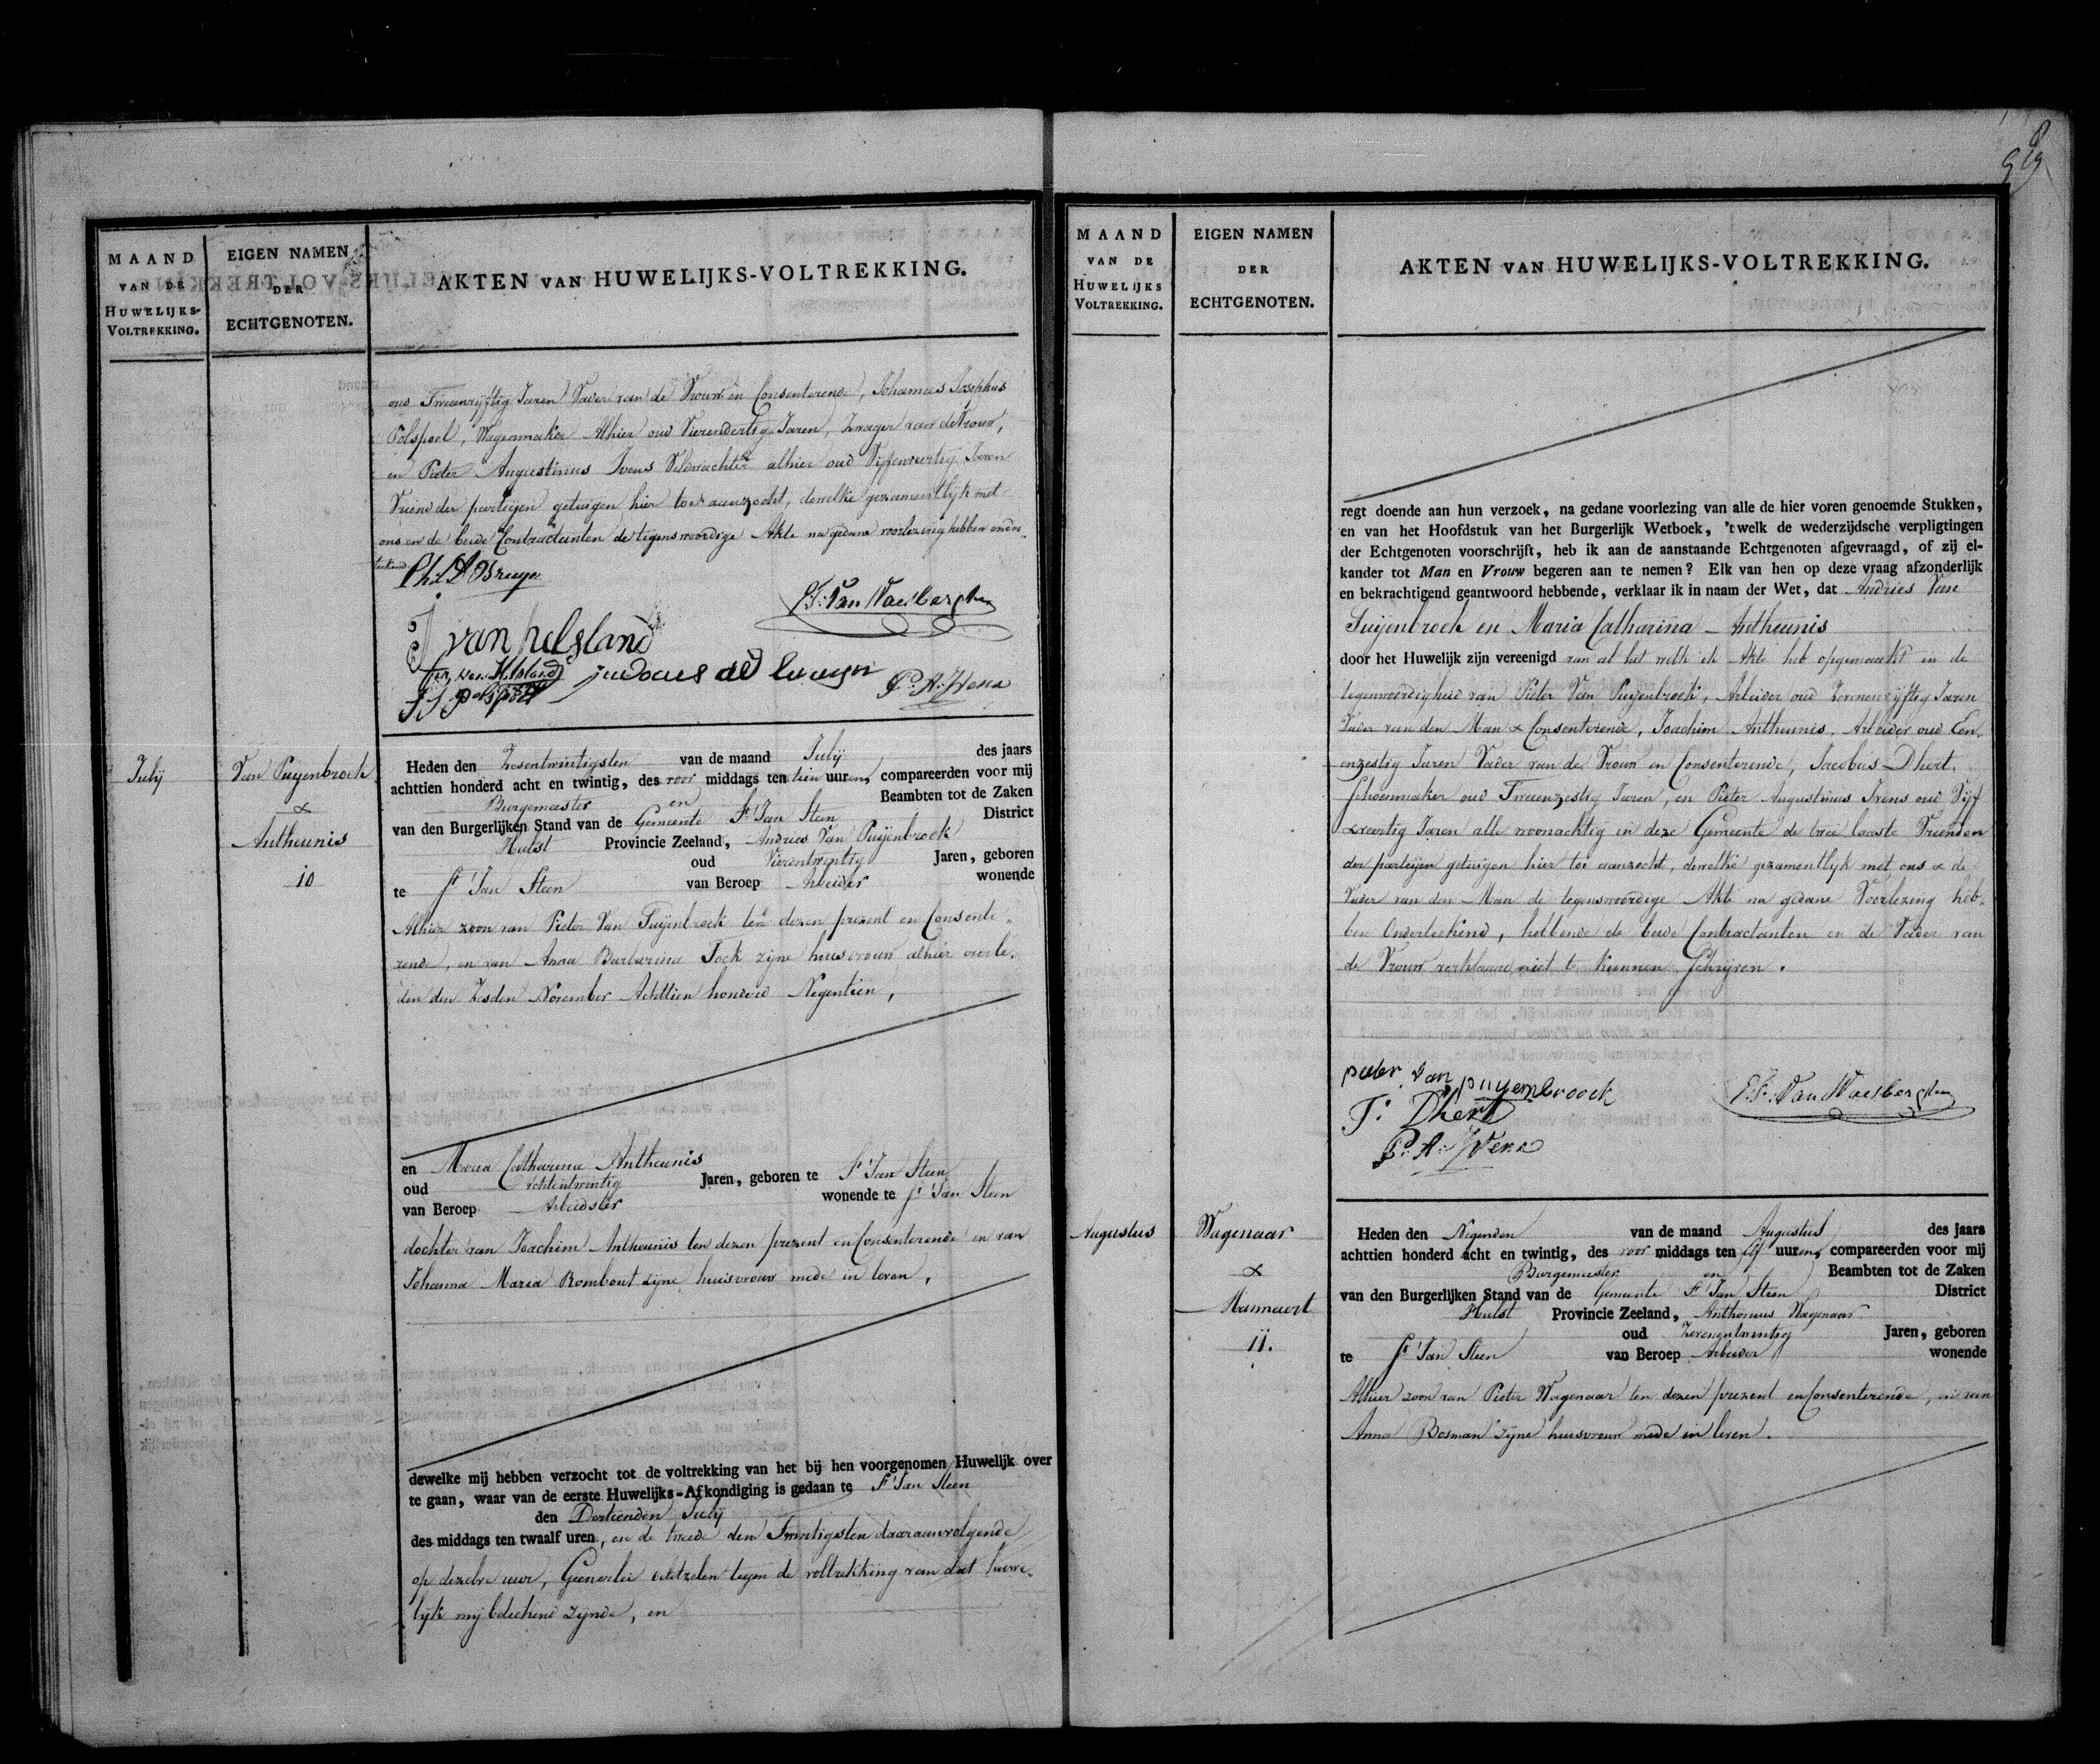 MAAND
VAN DE
HUWELIJKS-
VOLTREKKING.
EIGEN NAMEN
DER
ECHTGENOTEN.
AKTEN VAN HUWELIJKS-VOLTREKKING.
oud Tweenvijftig Jaren Vader van de Vrouw en Consenterende, Johannes Josephus
Polspoel, Wagenmaker Alhier oud Vierendertig Jaren, Zwager van de Vrouw,
en Pieter Augustinus Ivens Veldwachter alhier oud Vijfenveertig Jaren
Vriend der partijen getuigen hier toe aanzocht, dewelke gezamentlijk met
ons en de beide Contractanten de tegenswoordige Akte na gedane voorlezing hebben onder-
teekend
Phil D Bruyn
E.F. Van Waesberghe
J van helsland
judocus de
P. A. Ivens
J J polspoel
July
Van Puijenbroek
&
Antheunis
10
Heden den Zesentwintigsten van de maand July des jaars
achttien honderd acht en twintig, des voor middags ten tien uuren, compareerden voor mij
Burgemeester en Beambten tot de Zaken
van den Burgerlijken Stand van de Gemeente St Jan Steen District
Hulst Provincie Zeeland, Andries Van Puijenbroek
oud Vierentwintig Jaren, geboren
te St Jan Steen van Beroep Arbeider wonende
Alhier zoon van Pieter Van Puijenbroek ten dezen prezent en Consente-
rende, en van Anna Barbarina Tock zijne huisvrouw alhier overle-
den den Zesden November Achttien honderd Negentien,
en Maria Catharina Antheunis
oud Achtentwintig Jaren, geboren te St Jan Steen
van Beroep Arbeidster wonende te St Jan Steen
dochter van Joachim Antheunis ten dezen prezent en Consenterende en van
Johanna Maria Rombout zijne huisvrouw mede in leven,
dewelke mij hebben verzocht tot de voltrekking van het bij hen voorgenomen Huwelijk over
te gaan, waar van de eerste Huwelijks-Afkondiging is gedaan te St Jan Steen
den Dertienden July
des middags ten twaalf uren, en de tweede den Twintigsten daaraanvolgende
op dezelve uur, Geenerlei beletzelen tegen de voltrekking van dat huwe-
lijk mij bekend zijnde, en
MAAND
VAN DE
HUWELIJKS
VOLTREKKING.
EIGEN NAMEN
DER
ECHTGENOTEN.
AKTEN VAN HUWELIJKS-VOLTREKKING.
regt doende aan hun verzoek, na gedane voorlezing van alle de hier voren genoemde Stukken,
en van het Hoofdstuk van het Burgerlijk Wetboek, 't welk de wederzijdsche verpligtingen
der Echtgenoten voorschrijft, heb ik aan de aanstaande Echtgenoten afgevraagd, of zij el-
kander tot Man en Vrouw begeren aan te nemen? Elk van hen op deze vraag afzonderlijk
en bekrachtigend geantwoord hebbende, verklaar ik in naam der Wet, dat Andries Van
Puijenbroek en Maria Catharina Antheunis
door het Huwelijk zijn vereenigd van al het welk ik Akte heb opgemaakt in de
tegenwoordigheid van Pieter Van Puijenbroek, Arbeider oud Zevenenvijftig Jaren
Vader van den Man & Consenterende, Joachim Antheunis, Arbeider oud Een-
enzestig Jaren Vader van de Vrouw en Consenterende, Jacobus Dhert,
Schoenmaker oud Tweeenzestig Jaren, en Pieter Augustinus Ivens oud Vijf
& veertig Jaren alle woonachtig in deze Gemeente de twee laaste Vrienden
der partijen getuigen hier toe aanzocht, dewelke gezamentlijk met ons & de
Vader van den Man de tegenswoordige Akte na gedane Voorlezing heb-
ben Onderteekend, hebbende de beide Contractanten en de Vader van
de Vrouw verklaard niet te kunnen Schrijven.
pieter van puyembroock
E.F. Van Waesberghe
J. Dhert
P. A. Ivens
Augustus
Wagenaar
&
Mannaert
11.
Heden den Negenden van de maand Augustus des jaars
achttien honderd acht en twintig, des voor middags ten Elf uuren, compareerden voor mij
Burgemeester en Beambten tot de Zaken
van den Burgerlijken Stand van de Gemeente St Jan Steen District
Hulst Provincie Zeeland, Anthonius Wagenaar
oud Zevenentwintig Jaren, geboren
te St Jan Steen van Beroep Arbeider wonende
Alhier zoon van Pieter Wagenaar ten dezen prezent en Consenterende, en van
Anna Bosman zijne huisvrouw mede in leven.